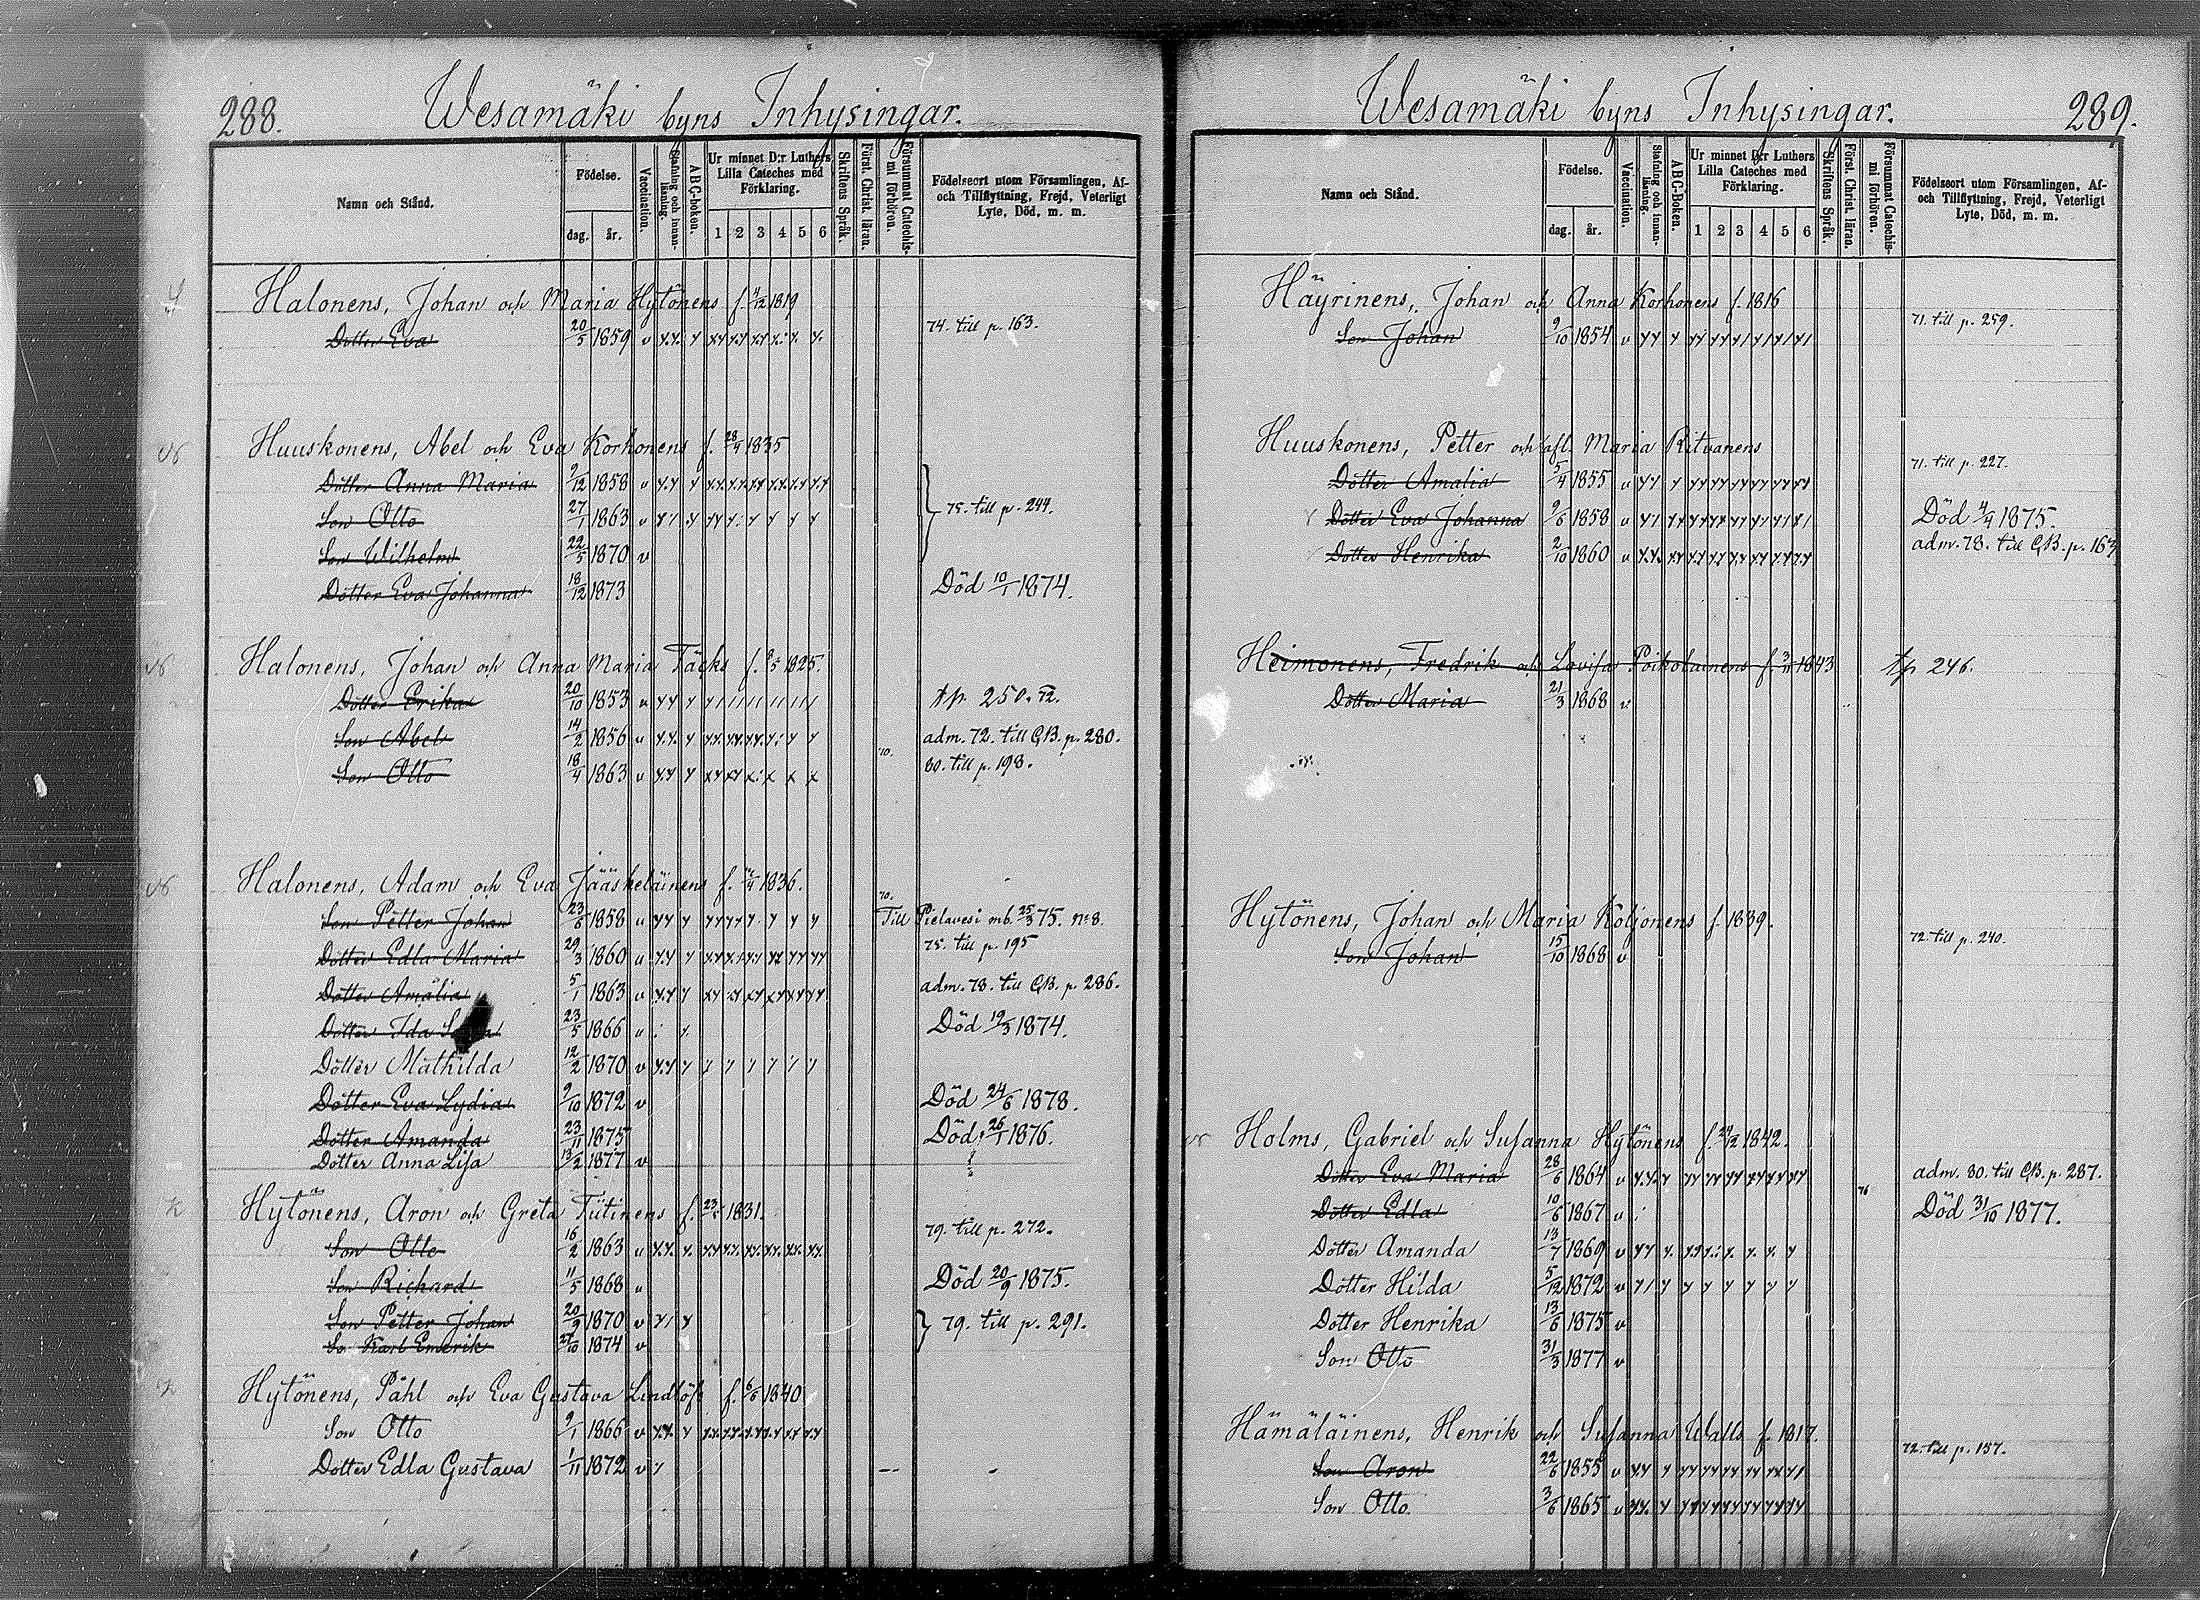 288.
Wesamäki byns Inhysingar.
Namn och Stånd.
Födelse.
dag. år.
Vaccination.
Stafning och innan-läsning.
ABC-boken.
Ur minnet D:r Luthers Lilla Cateches med Förklaring.
1 2 3 4 5 6
Skriftens Språk.
Först. Christ. läran.
Försummat Catechis-mi förhören.
Födelseort utom Församlingen, Af-
och Tillflyttning, Frejd, Veterligt
Lyte, Död, m. m.
Halonens, Johan och Maria Hytönens f. 4/12 1819
Dotter Eva 20/5 1859 v 74. till p. 163.
Huuskonens, Abel och Eva Korhonens f. 28/4 1835
Dotter Anna Maria 9/12 1858 v
Son Otto 27/1 1863 v 75. till p. 244.
Son Wilhelm 22/5 1870 v
Dotter Eva Johanna 18/12 1873 Död 10/1 1874.
Halonens, Johan och Anna Maria Täcks f. 9/5 1825.
Dotter Erika 20/10 1853 v tp. 250. 72.
Son Abel 14/2 1856 v adm. 72. till C.B. p. 280.
Son Otto 18/4 1863 v 80. till p. 198.
Halonens, Adam och Eva Jääskeläinens f. 1836.
Son Petter Johan 23/6 1858 v 70. Till Pielavesi mb. 25/3 75. No 8.
Dotter Edla Maria 29/3 1860 v 75. till p. 195
Dotter Amalia 5/1 1863 v adm. 78. till C.B. p. 286.
Dotter Ida 23/5 1866 v Död 19/3 1874.
Dotter Mathilda 12/2 1870 v
Dotter Eva Lydia 9/10 1872 v Död 24/6 1878.
Dotter Amanda 23/11 1875 Död 26/1 1876.
Dotter Anna Lisa 13/2 1877 v
Hytönens, Aron och Greta Tiitinens f. 1831.
Son Otto 16/2 1863 v 79. till p. 272.
Son Richard 11/5 1868 v Död 20/9 1875.
Son Petter Johan 20/9 1870 v 79. till p. 291.
So Karl Emerik 27/10 1874 v
Hytönens, Påhl och Eva Gustava Lindlöfs f. 6/6 1840
Son Otto 9/1 1866 v
Dotter Edla Gustava 1/11 1872 v
Wesamäki byns Inhysingar.
289.
Namn och Stånd.
Födelse.
dag. år.
Vaccination.
Stafning och innan-läsning.
ABC-Boken.
Ur minnet D:r Luthers Lilla Cateches med Förklaring.
1 2 3 4 5 6
Skriftens Språk.
Först. Christ. läran.
Försummat Catechis-mi förhören.
Födelseort utom Församlingen, Af-
och Tillflyttning, Frejd, Veterligt
Lyte, Död, m. m.
Häyrinens, Johan och Anna Korhonens f. 1816
Son Johan 9/10 1854 v 71. till p. 259.
Huuskonens, Petter och afl. Maria Ritvanens
Dotter Amalia 5/4 1855 v 71. till p. 227.
Dotter Eva Johanna 9/6 1858 v Död 4/4 1875.
Dotter Henrika 2/10 1860 v adm. 78. till C.B. p. 163
Heimonens, Fredrik och Lovisa Poikolainens f. 3/11 1843 tp 246.
Dotter Maria 21/3 1868 v
Hytönens, Johan och Maria Koljonens f. 1839.
Son Johan 15/10 1868 v 72. till p. 240.
Holms, Gabriel och Susanna Hytönens f. 24/2 1842.
Dotter Eva Maria 28/6 1864 v adm. 80. till C.B. p. 287.
Dotter Edla 10/6 1867 v 76 Död 31/10 1877.
Dotter Amanda 13/7 1869 v
Dotter Hilda 5/12 1872 v
Dotter Henrika 13/6 1875 v
Son Otto 31/3 1877 v
Hämäläinens, Henrik och Susanna Walls f. 1817.
Son Aron 22/6 1855 v 72. till p. 157.
Son Otto 3/6 1865 v